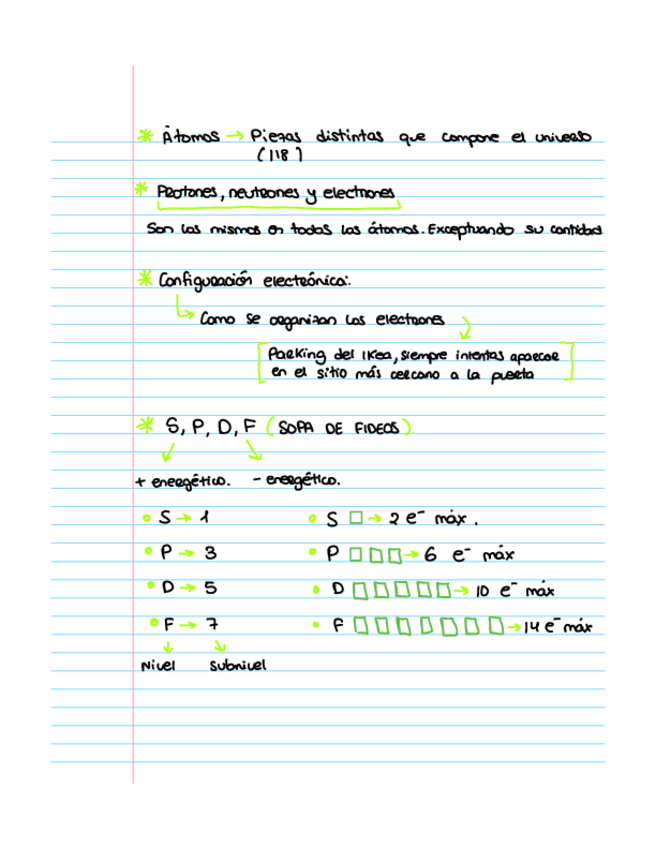 * Átomos → Piezas distintas que compone el universo
(118)
* Protones, neutrones y electrones
Son los mismos en todos los átomos. Exceptuando su cantidad
* Configuración electrónica:
Como se organizan los electrones
[Parking del IKea, siempre intentas aparcar
en el sitio más cercano a la puerta]
* S, P, D, F (SOPA DE FIDEOS)
+ energético. - energético.
S → 1
P → 3
D → 5
F → 7
Nivel Subnivel
S □ → 2 e⁻ máx.
P □□□ → 6 e⁻ máx
D □□□□□ → 10 e⁻ máx
F □□□□□□□ → 14 e⁻ máx